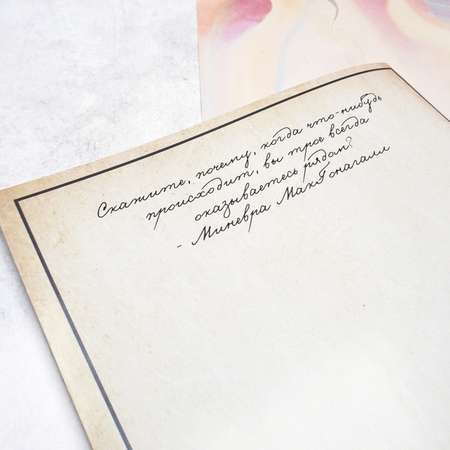 Скажите, почему, когда что-нибудь
происходит, вы трое всегда
оказываетесь рядом?
- Миневра МакГонагалл